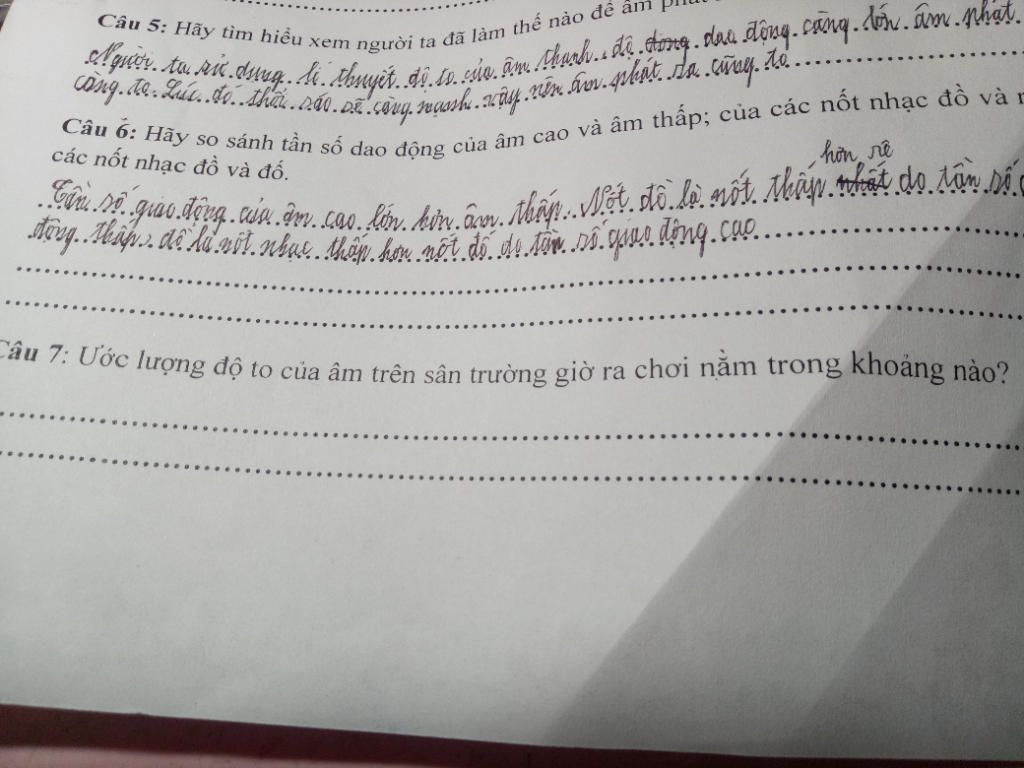 Câu 5: Hãy tìm hiểu xem người ta đã làm thế nào để âm
Người ta sử dụng lí thuyết độ to của âm thanh độ dao động càng lớn âm phát
càng to. Lúc đó thổi sáo sẽ càng mạnh vậy nên âm phát ra cũng to
Câu 6: Hãy so sánh tần số dao động của âm cao và âm thấp; của các nốt nhạc đồ và
các nốt nhạc đồ và đố.
hơn rê
Tần số giao động của âm cao lớn hơn âm thấp. Nốt đồ là nốt thấp nhất do tần số
động thấp, đồ là nốt nhạc thấp hơn nốt đố do tần số giao động cao
Câu 7: Ước lượng độ to của âm trên sân trường giờ ra chơi nằm trong khoảng nào?